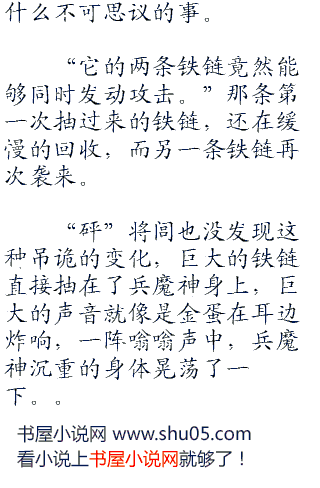 什么不可思议的事。
“它的两条铁链竟然能
够同时发动攻击。”那条第
一次抽过来的铁链，还在缓
慢的回收，而另一条铁链再
次袭来。
“砰”将闾也没发现这
种吊诡的变化，巨大的铁链
直接抽在了兵魔神身上，巨
大的声音就像是金蛋在耳边
炸响，一阵嗡嗡声中，兵魔
神沉重的身体晃荡了一
下。。
书屋小说网 www.shu05.com
看小说上书屋小说网就够了！